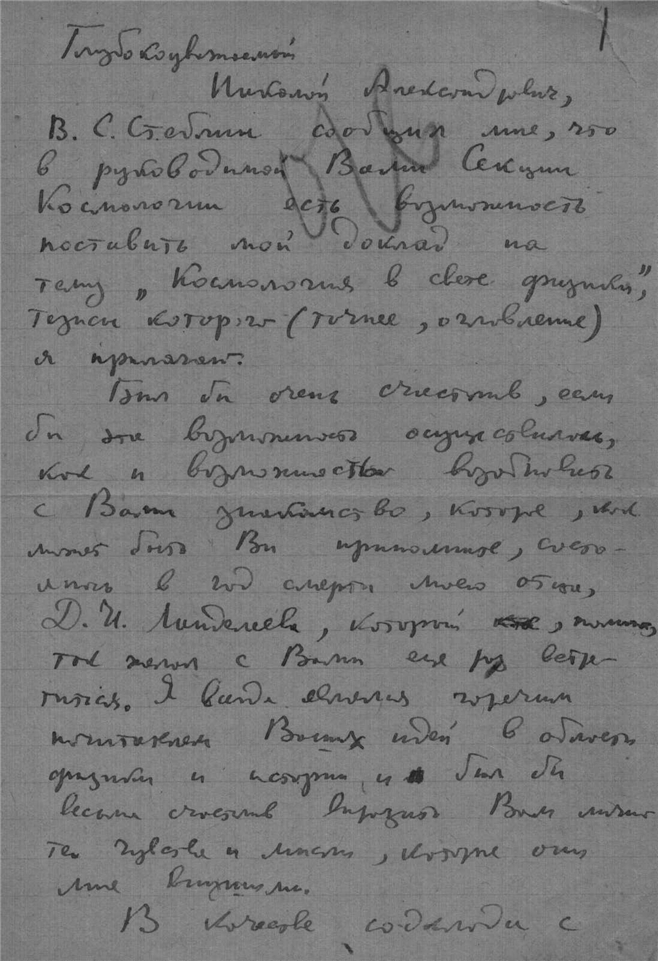 1
Глубокоуважаемый
Николай Александрович,
В. С. Стеблин сообщил мне, что
в руководимой Вами Секции
Космологии есть возможность
поставить мой доклад на
тему „Космология в свете физики",
тезисы которого (точнее, оглавление)
я прилагаю.
Был бы очень счастлив, если
бы эта возможность осуществилась,
как и возможность возобновить
с Вами знакомство, которое, как
может быть Вы припомните, состо-
ялось в год смерти моего отца,
Д. И. , который , помню,
так желал с Вами еще раз встре-
титься. Я всегда являлся горячим
почитателем Ваших идей в области
физики и истории, и был бы
весьма счастлив выразить Вам лично
те чувства и мысли, которые они
мне внушили.
В качестве содоклада с